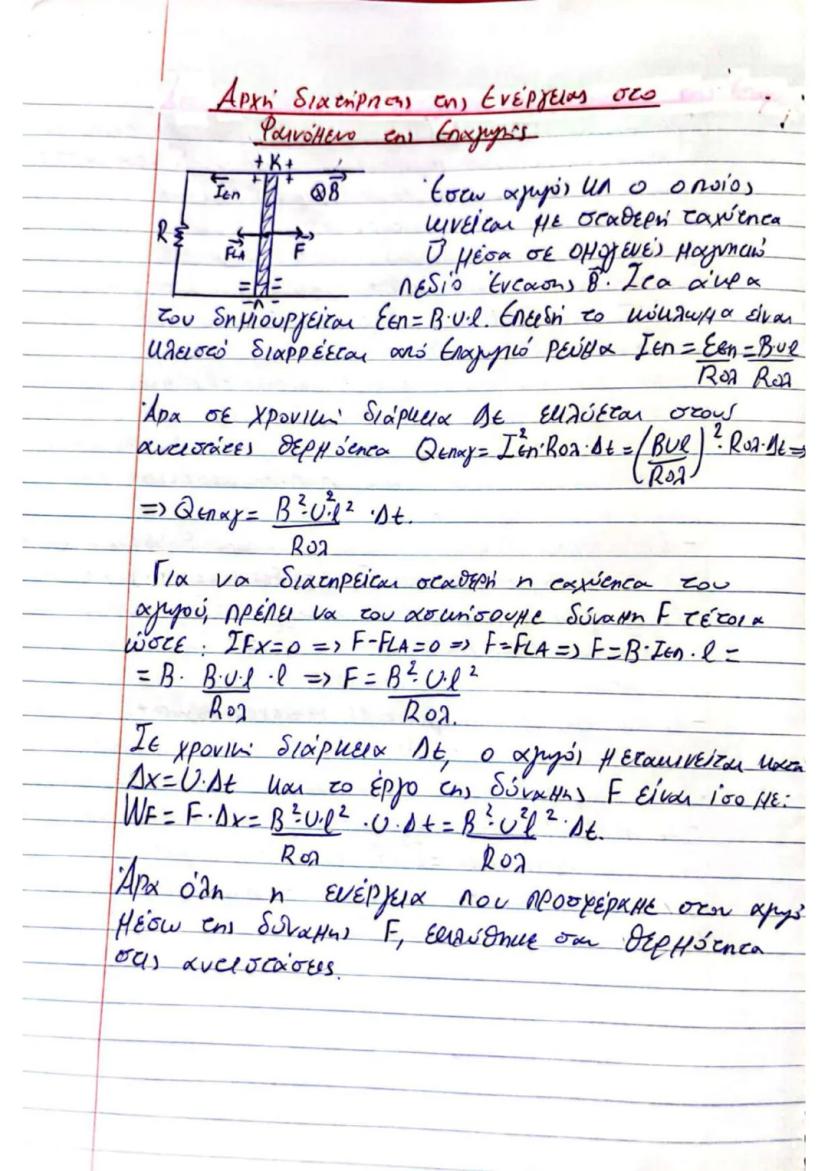 Αρχή διατήρησης της Ενέργειας στο
Φαινόμενο της Επαγωγής
+ K +
+ +
Iεπ
⊗B
R
FLA
F
= =
- Λ -
Έστω αγωγός ΚΛ ο οποίος
κινείται με σταθερή ταχύτητα
υ μέσα σε ομογενές μαγνητικό
πεδίο έντασης B. Στα άκρα
του δημιουργείται Eεπ=B·υ·l. Επειδή το κύκλωμα είναι
κλειστό διαρρέεται από επαγωγικό ρεύμα Iεπ = Eεπ/Rολ = Bυl/Rολ
Άρα σε χρονική διάρκεια Δt εκλύεται στους
αντιστάτες θερμότητα Qεπαγ = Iεπ²·Rολ·Δt = (Bυl/Rολ)²·Rολ·Δt =>
=> Qεπαγ = B²·υ²·l²/Rολ ·Δt.
Για να διατηρείται σταθερή η ταχύτητα του
αγωγού, πρέπει να του ασκήσουμε δύναμη F τέτοια
ώστε: ΣFx=0 => F-FLA=0 => F=FLA => F=B·Iεπ·l =
= B· B·υ·l/Rολ ·l => F = B²·υ·l²/Rολ.
Σε χρονική διάρκεια Δt, ο αγωγός μετακινείται κατα
Δx=υ·Δt και το έργο της δύναμης F είναι ίσο με:
WF = F·Δx = B²·υ·l²/Rολ ·υ·Δt = B²·υ²l²/Rολ ·Δt.
Άρα όλη η ενέργεια που προσφέραμε στον αγωγό
μέσω της δύναμης F, εκλύθηκε σαν θερμότητα
στις αντιστάσεις.